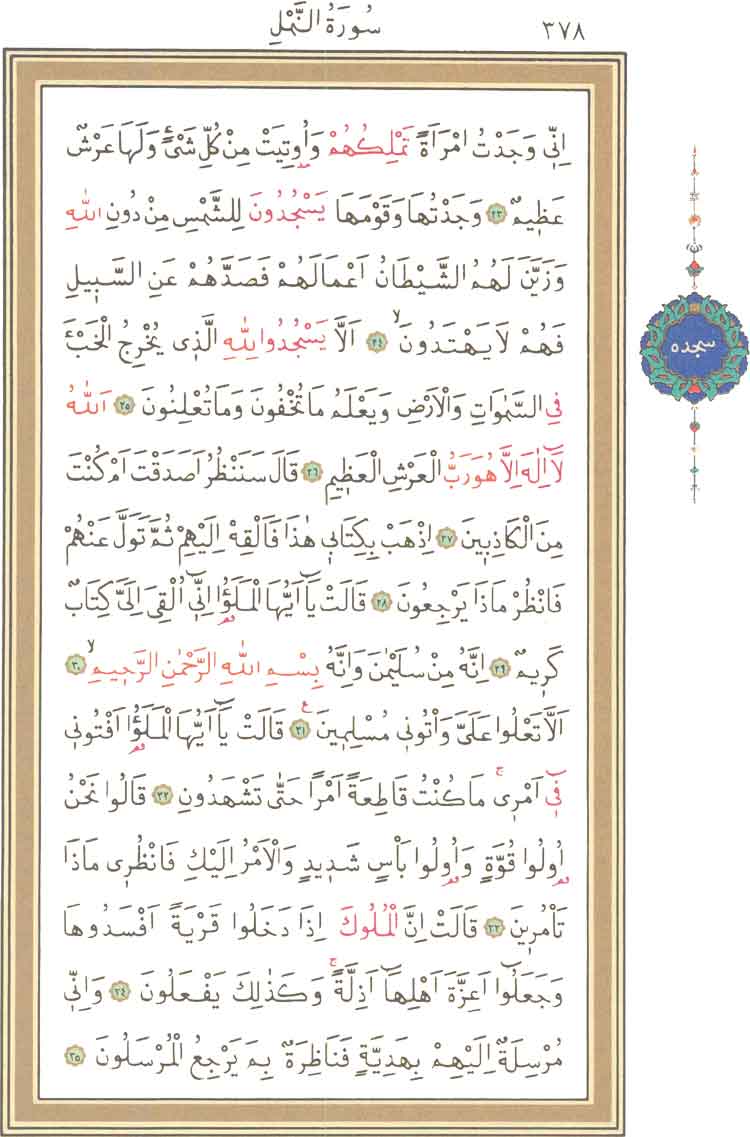 ٣٧٨
سُورَةُ النَّمْلِ
اِنّ۪ي وَجَدْتُ امْرَاَةً تَمْلِكُهُمْ وَاُو۫تِيَتْ مِنْ كُلِّ شَيْءٍ وَلَهَا عَرْشٌ
عَظ۪يمٌ ﴿٢٣﴾ وَجَدْتُهَا وَقَوْمَهَا يَسْجُدُونَ لِلشَّمْسِ مِنْ دُونِ اللّٰهِ
وَزَيَّنَ لَهُمُ الشَّيْطَانُ اَعْمَالَهُمْ فَصَدَّهُمْ عَنِ السَّب۪يلِ
فَهُمْ لَا يَهْتَدُونَۙ ﴿٢٤﴾ اَلَّا يَسْجُدُوا لِلّٰهِ الَّذ۪ي يُخْرِجُ الْخَبْءَ
فِي السَّمٰوَاتِ وَالْاَرْضِ وَيَعْلَمُ مَا تُخْفُونَ وَمَا تُعْلِنُونَ ﴿٢٥﴾ اَللّٰهُ
لَٓا اِلٰهَ اِلَّا هُوَ رَبُّ الْعَرْشِ الْعَظ۪يمِ ﴿٢٦﴾ قَالَ سَنَنْظُرُ اَصَدَقْتَ اَمْ كُنْتَ
مِنَ الْكَاذِب۪ينَ ﴿٢٧﴾ اِذْهَبْ بِكِتَاب۪ي هٰذَا فَاَلْقِهْ اِلَيْهِمْ ثُمَّ تَوَلَّ عَنْهُمْ
فَانْظُرْ مَاذَا يَرْجِعُونَ ﴿٢٨﴾ قَالَتْ يَٓا اَيُّهَا الْمَلَؤُ۬ا اِنّ۪ٓي اُلْقِيَ اِلَيَّ كِتَابٌ
كَر۪يمٌ ﴿٢٩﴾ اِنَّهُ مِنْ سُلَيْمٰنَ وَاِنَّهُ بِسْمِ اللّٰهِ الرَّحْمٰنِ الرَّح۪يمِۙ ﴿٣٠﴾
اَلَّا تَعْلُوا عَلَيَّ وَأْتُون۪ي مُسْلِم۪ينَ۟ ﴿٣١﴾ قَالَتْ يَٓا اَيُّهَا الْمَلَؤُ۬ا اَفْتُون۪ي
ف۪ٓي اَمْر۪يۚ مَا كُنْتُ قَاطِعَةً اَمْرًا حَتّٰى تَشْهَدُونِ ﴿٣٢﴾ قَالُوا نَحْنُ
اُو۬لُوا قُوَّةٍ وَاُو۬لُوا بَأْسٍ شَد۪يدٍ وَالْاَمْرُ اِلَيْكِ فَانْظُر۪ي مَاذَا
تَأْمُر۪ينَ ﴿٣٣﴾ قَالَتْ اِنَّ الْمُلُوكَ اِذَا دَخَلُوا قَرْيَةً اَفْسَدُوهَا
وَجَعَلُٓوا اَعِزَّةَ اَهْلِهَٓا اَذِلَّةًۚ وَكَذٰلِكَ يَفْعَلُونَ ﴿٣٤﴾ وَاِنّ۪ي
مُرْسِلَةٌ اِلَيْهِمْ بِهَدِيَّةٍ فَنَاظِرَةٌ بِمَ يَرْجِعُ الْمُرْسَلُونَ ﴿٣٥﴾
سجده